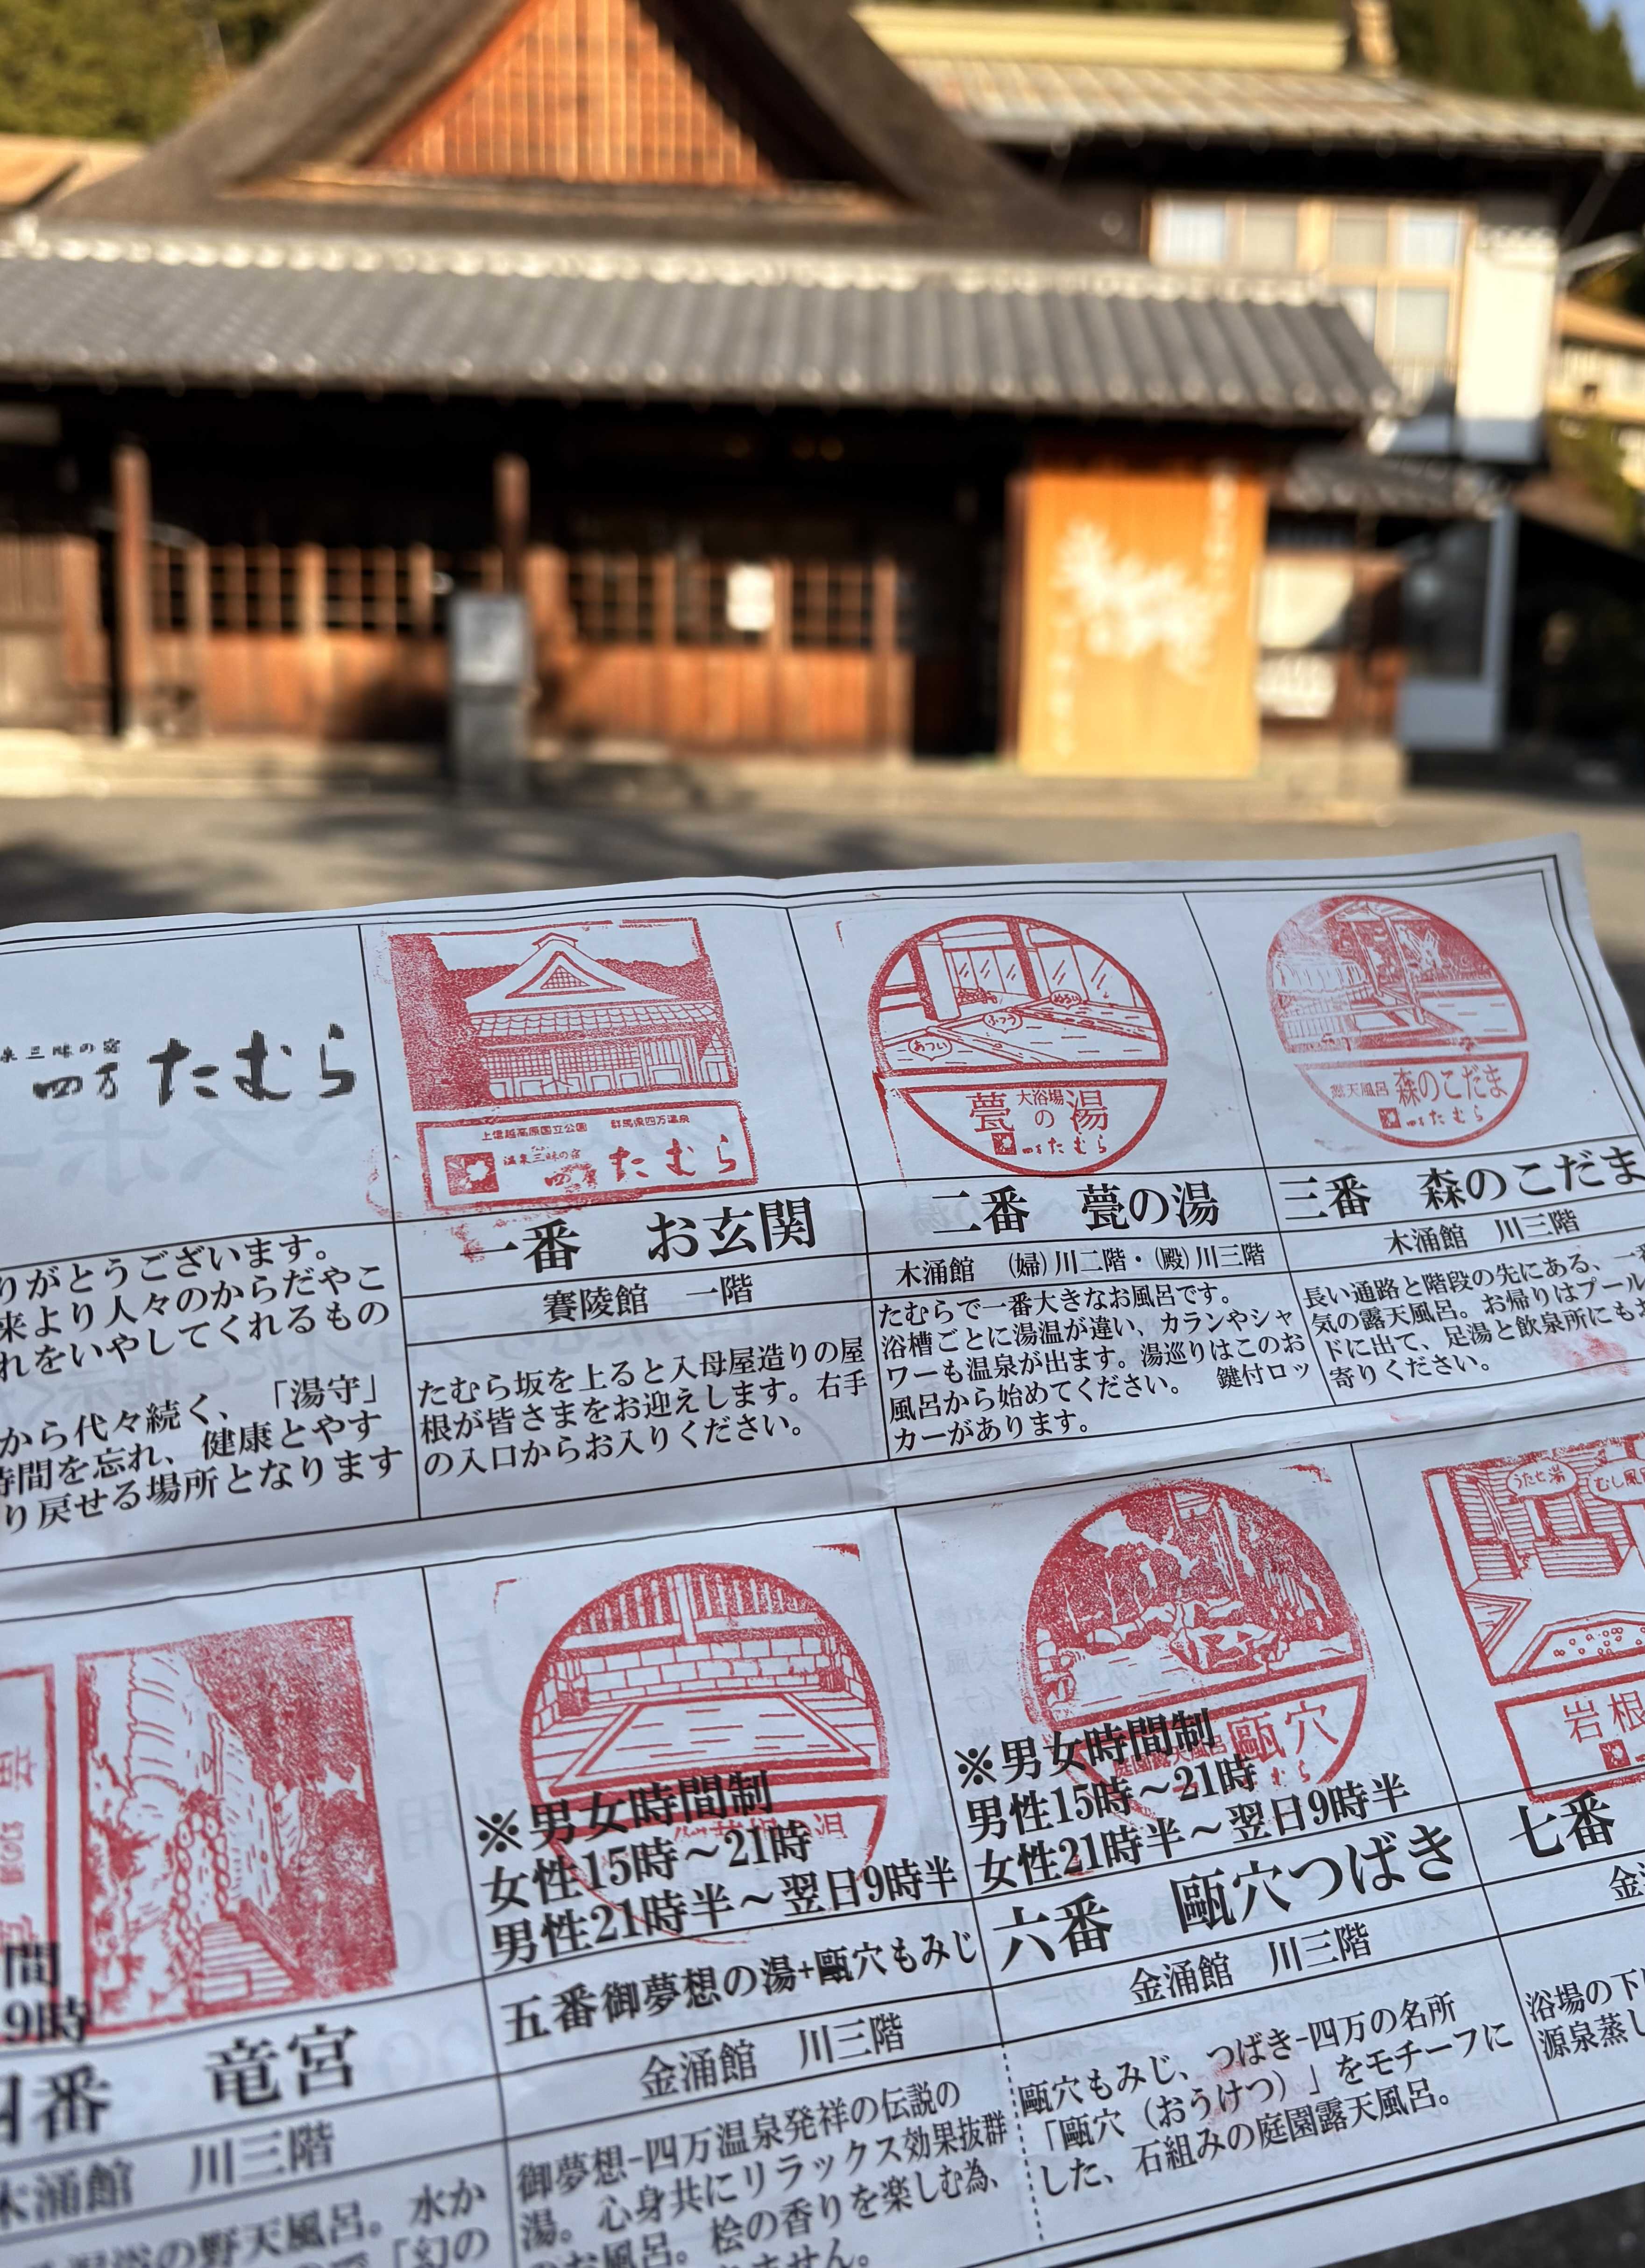 三昧の宿
四万 たむら
りがとうございます。
来より人々のからだやこ
れをいやしてくれるもの
から代々続く、「湯守」
時間を忘れ、健康とやす
り戻せる場所となります
上信越高原国立公園 群馬県四万温泉
温泉三昧の宿
四万 たむら
一番 お玄関
賽陵館 一階
たむら坂を上ると入母屋造りの屋
根が皆さまをお迎えします。右手
の入口からお入りください。
ぬるい
ふつう
あつい
大浴場
甍の湯
四万たむら
二番 甍の湯
木涌館 (婦)川二階・(殿)川三階
たむらで一番大きなお風呂です。
浴槽ごとに湯温が違い、カランやシャ
ワーも温泉が出ます。湯巡りはこのお
風呂から始めてください。 鍵付ロッ
カーがあります。
露天風呂 森のこだま
四万たむら
三番 森のこだま
木涌館 川三階
長い通路と階段の先にある、一番
気の露天風呂。お帰りはプール
ドに出て、足湯と飲泉所にもお
寄りください。
間
9時
四番 竜宮
木涌館 川三階
の野天風呂。水か
「幻の
※男女時間制
女性15時～21時
男性21時半～翌日9時半
五番御夢想の湯+甌穴もみじ
金涌館 川三階
御夢想-四万温泉発祥の伝説の
湯。心身共にリラックス効果抜群
のお風呂。桧の香りを楽しむ為、
ません。
庭園露天風呂 甌穴
※男女時間制
男性15時～21時
女性21時半～翌日9時半
六番 甌穴つばき
金涌館 川三階
甌穴もみじ、つばき-四万の名所
「甌穴（おうけつ）」をモチーフに
した、石組みの庭園露天風呂。
うたせ湯
むし風呂
岩根
七番
金
浴場の下
源泉蒸し